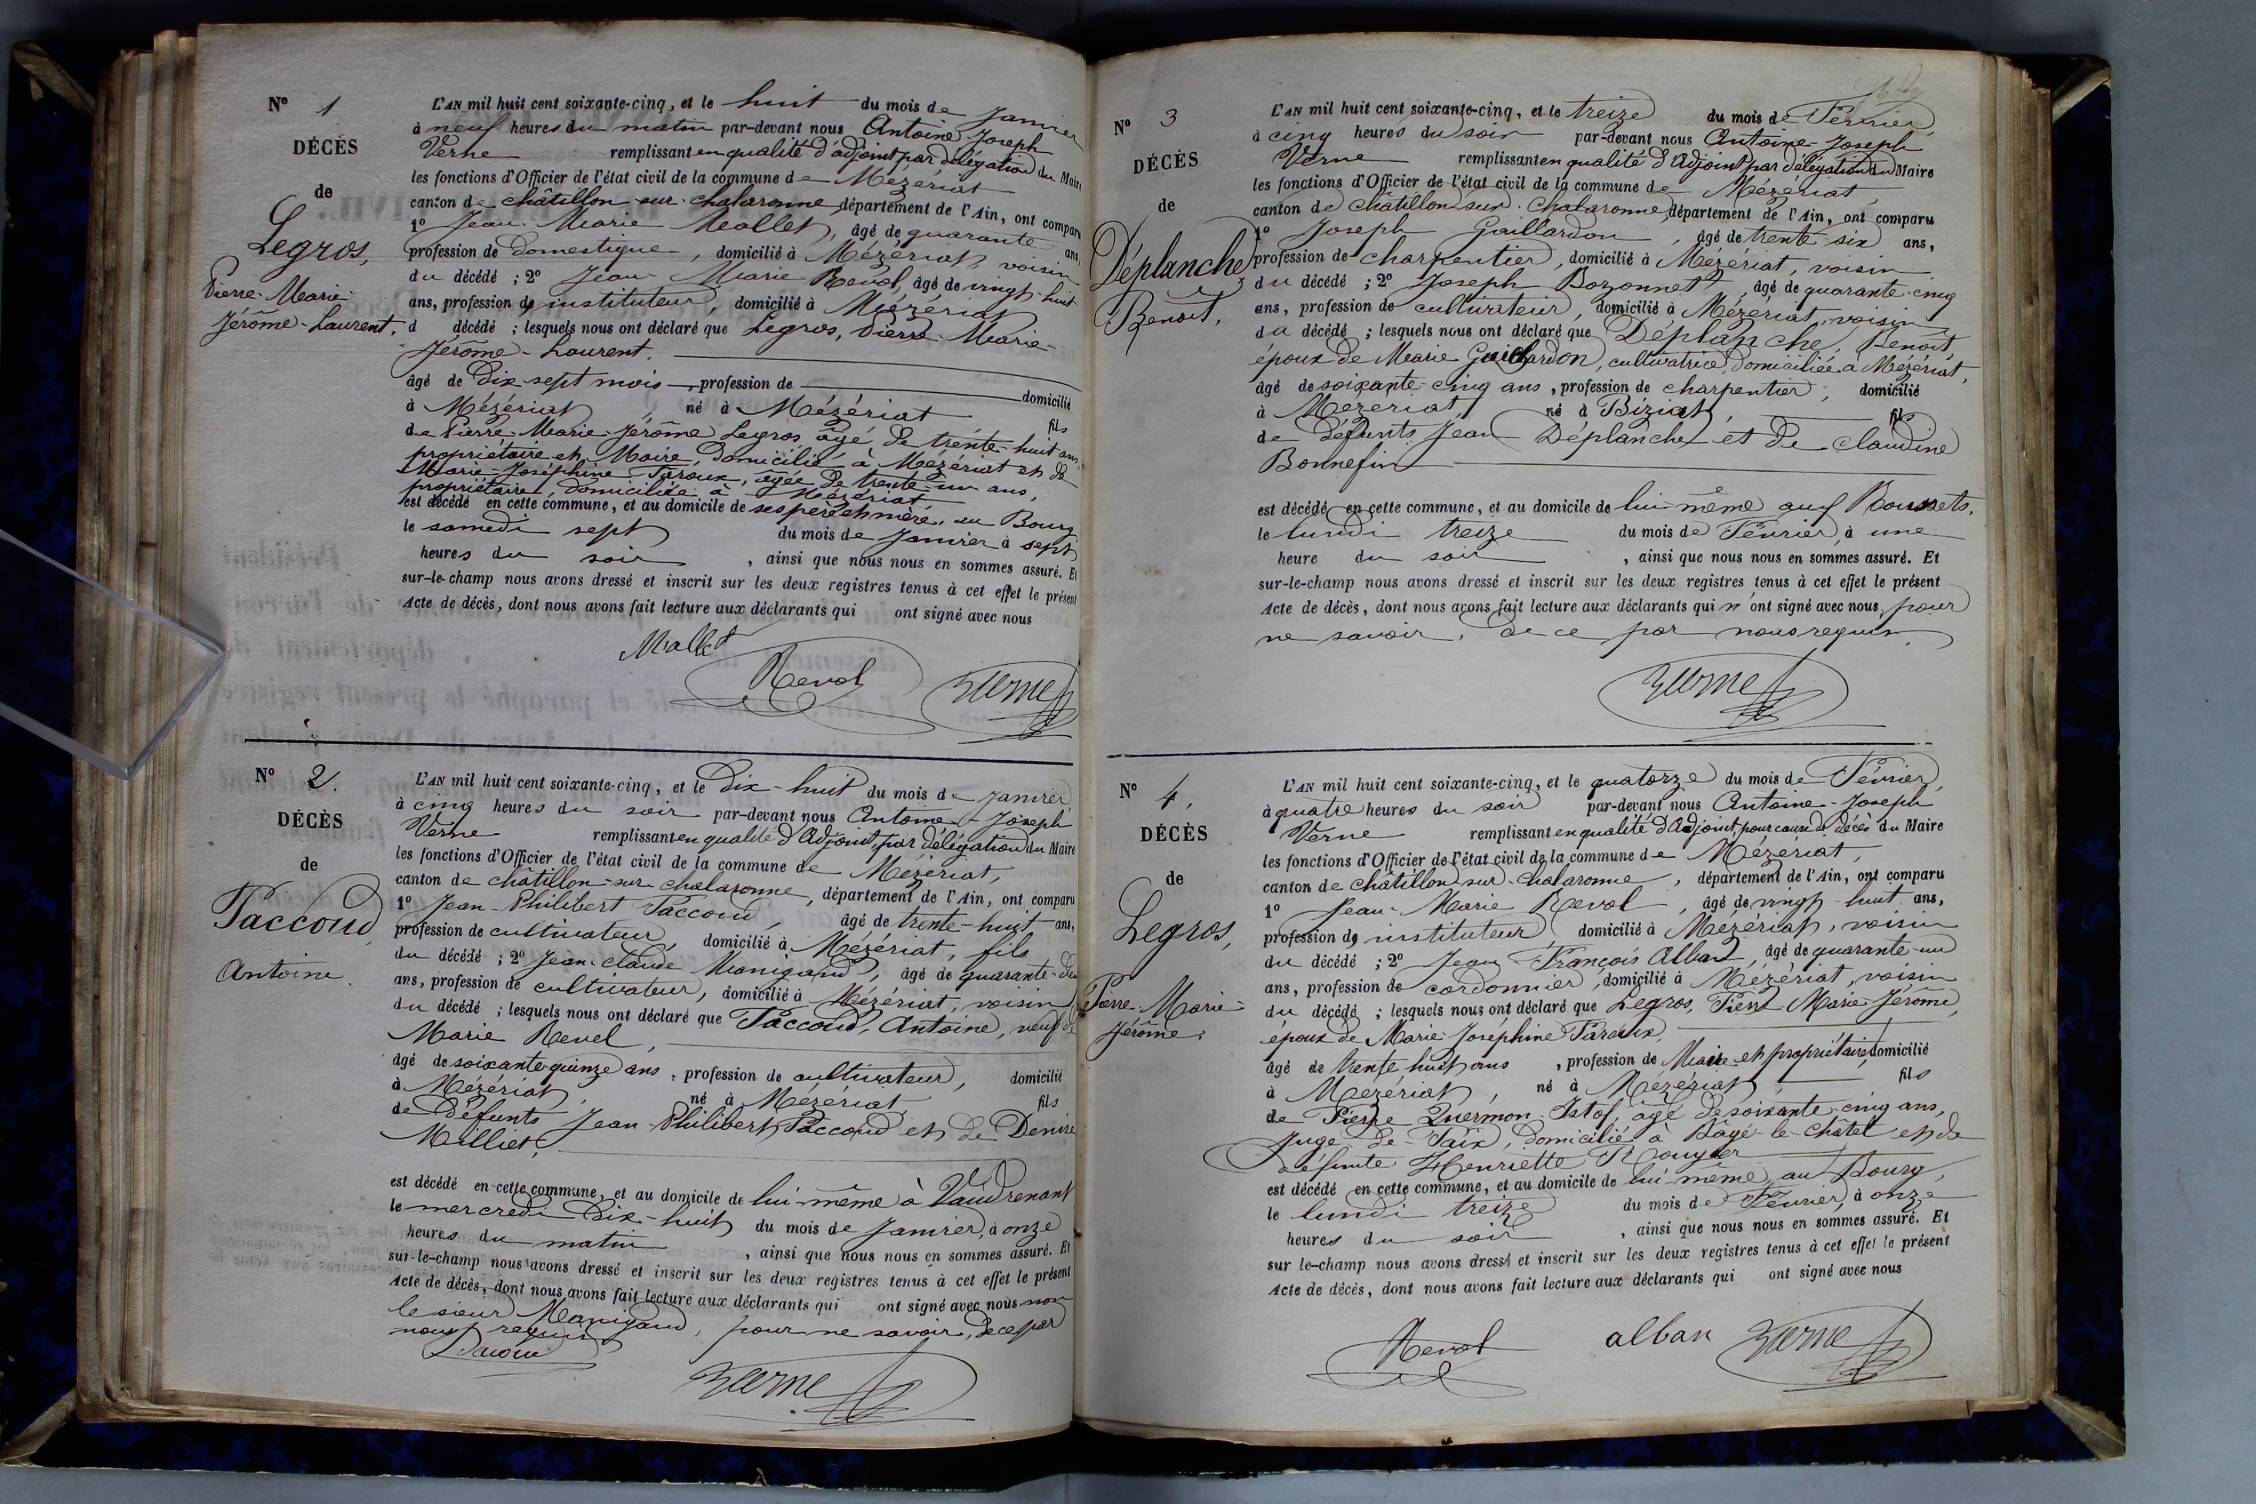 N° 1
DÉCÈS
de
Legros,
Pierre-Marie-
Jérôme-Laurent.
L'AN mil huit cent soixante-cinq, et le huit du mois de Janvier
à neuf heures du matin par-devant nous Antoine Joseph
Verne remplissant en qualité d'adjoint par délégation du Maire
les fonctions d'Officier de l'état civil de la commune de Mézériat
canton de châtillon-sur-chalaronne, département de l'Ain, ont comparu
1° Jean-Marie Mallet, âgé de quarante ans,
profession de domestique, domicilié à Mézériat, voisin
du décédé ; 2° Jean Marie Revol, âgé de vingt-huit
ans, profession de instituteur, domicilié à Mézériat
d décédé ; lesquels nous ont déclaré que Legros, Pierre-Marie-
Jérôme-Laurent.
âgé de Dix-sept mois, profession de domicilié
à Mézériat né à Mézériat fils
de Pierre-Marie-Jérôme Legros, âgé de trente-huit ans,
propriétaire et Maire, domicilié à Mézériat et de
Marie-Joséphine, âgée de trente-un ans,
propriétaire, domiciliée à Mézériat
est décédé en cette commune, et au domicile de ses père et mère, au Bourg
le samedi sept du mois de Janvier à sept
heures du soir, ainsi que nous nous en sommes assuré. Et
sur-le-champ nous avons dressé et inscrit sur les deux registres tenus à cet effet le présent
Acte de décès, dont nous avons fait lecture aux déclarants qui ont signé avec nous
Mallet
Revol Verne
N° 2.
DÉCÈS
de
Paccoud,
Antoine.
L'AN mil huit cent soixante-cinq, et le Dix-huit du mois de Janvier,
à cinq heures du soir par-devant nous Antoine-Joseph
Verne remplissant en qualité d'Adjoint, par délégation du Maire
les fonctions d'Officier de l'état civil de la commune de Mézériat,
canton de châtillon-sur-chalaronne, département de l'Ain, ont comparu
1° Jean-Philibert Paccoud, âgé de trente-huit ans,
profession de cultivateur, domicilié à Mézériat, fils
du décédé ; 2° Jean-Claude Manigand, âgé de quarante-
ans, profession de cultivateur, domicilié à Mézériat, voisin
du décédé ; lesquels nous ont déclaré que Paccoud, Antoine, veuf de
Marie Revel,
âgé de soixante-quinze ans, profession de cultivateur, domicilié
à Mézériat, né à Mézériat, fils
de défunts Jean-Philibert Paccoud et de Denise
Milliet,
est décédé en cette commune, et au domicile de lui-même à Vaudrenant
le mercredi Dix-huit du mois de Janvier, à onze
heures du matin, ainsi que nous nous en sommes assuré. Et
sur-le-champ nous avons dressé et inscrit sur les deux registres tenus à cet effet le présent
Acte de décès, dont nous avons fait lecture aux déclarants qui ont signé avec nous non
le sieur Manigand, pour ne savoir, de ce par
nous requis
Paccoud
Verne
N° 3
DÉCÈS
de
Déplanche,
Benoit,
L'AN mil huit cent soixante-cinq, et le treize du mois de Février,
à cinq heures du soir par-devant nous Antoine-Joseph
Verne remplissant en qualité d'Adjoint par délégation du Maire
les fonctions d'Officier de l'état civil de la commune de Mézériat,
canton de châtillon sur-Chalaronne, département de l'Ain, ont comparu
1° Joseph Gaillardon, âgé de trente six ans,
profession de charpentier, domicilié à Mézériat, voisin
du décédé ; 2° Joseph Bozonnet, âgé de quarante-cinq
ans, profession de cultivateur, domicilié à Mézériat, voisin
du décédé ; lesquels nous ont déclaré que Déplanche, Benoit
époux de Marie Gaillardon, cultivatrice, domiciliée à Mézériat,
âgé de soixante-cinq ans, profession de charpentier, domicilié
à Mézériat, né à Biziat, fils
de défunts Jean Déplanche et de Claudine
Bonnefin
est décédé en cette commune, et au domicile de lui-même aux Boussets,
le lundi treize du mois de Février, à une
heure du soir, ainsi que nous nous en sommes assuré. Et
sur-le-champ nous avons dressé et inscrit sur les deux registres tenus à cet effet le présent
Acte de décès, dont nous avons fait lecture aux déclarants qui n'ont signé avec nous, pour
ne savoir, de ce par nous requis,
Verne
N° 4,
DÉCÈS
de
Legros,
Pierre-Marie-
Jérôme.
L'AN mil huit cent soixante-cinq, et le quatorze du mois de Février,
à quatre heures du soir par-devant nous Antoine-Joseph
Verne remplissant en qualité d'Adjoint, pour cause de décès du Maire
les fonctions d'Officier de l'état civil de la commune de Mézériat,
canton de châtillon sur-chalaronne, département de l'Ain, ont comparu
1° Jean-Marie Revol, âgé de vingt-huit ans,
profession de instituteur, domicilié à Mézériat, voisin
du décédé ; 2° Jean François Alban, âgé de quarante-un
ans, profession de cordonnier, domicilié à Mézériat, voisin
du décédé ; lesquels nous ont déclaré que Legros, Pierre-Marie-Jérôme,
époux de Marie-Joséphine
âgé de trente huit ans, profession de Maire et propriétaire, domicilié
à Mézériat, né à Mézériat, fils
de Pierre, âgé de soixante-cinq ans,
Juge de Paix, domicilié à Bâgé-le-châtel et de
défunte Henriette Rouyer
est décédé en cette commune, et au domicile de lui-même, au Bourg,
le lundi treize du mois de Février, à onze
heures du soir, ainsi que nous nous en sommes assuré. Et
sur le-champ nous avons dressé et inscrit sur les deux registres tenus à cet effet le présent
Acte de décès, dont nous avons fait lecture aux déclarants qui ont signé avec nous
Revol alban Verne